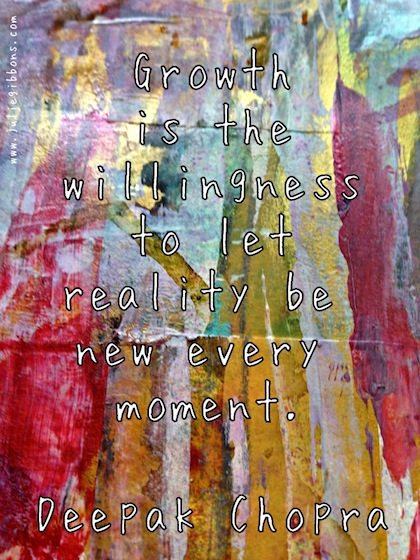 www.juliegibbons.com
Growth
is the
willingness
to let
reality be
new every
moment.
Deepak Chopra